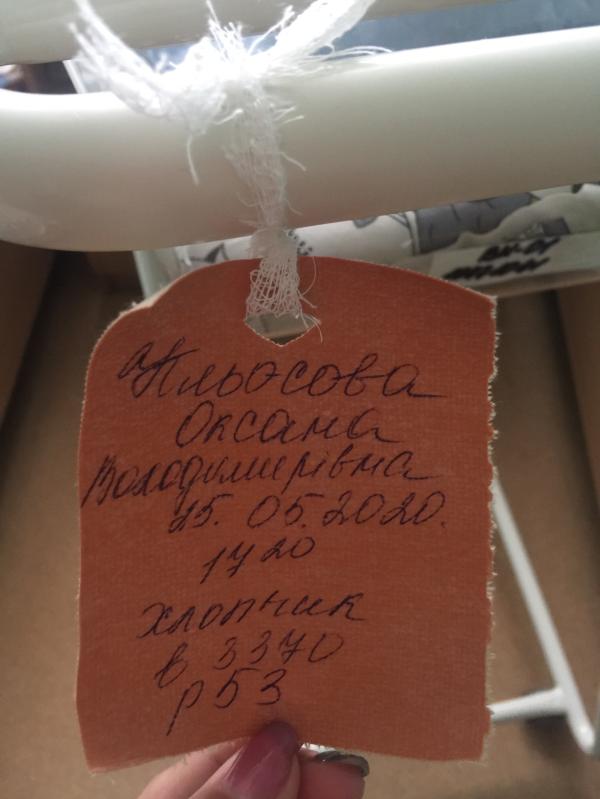 Пльосова
Оксана
Володимирівна
25. 05. 2020.
17 20
хлопчик
в 3370
р 53